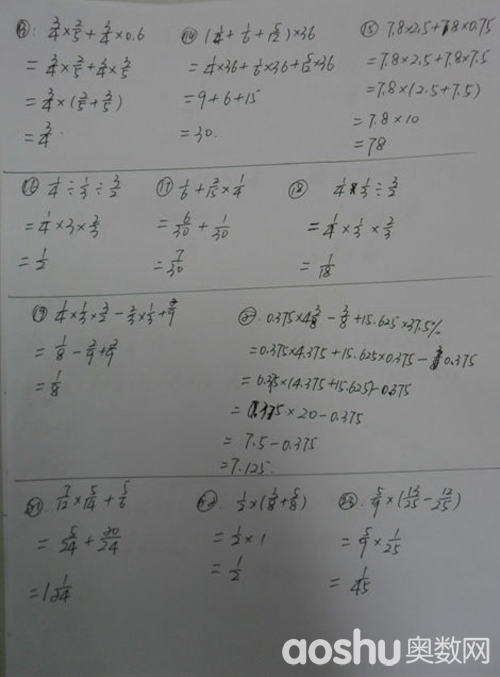 ⑬. 3/4×2/5+3/4×0.6
=3/4×2/5+3/4×3/5
=3/4×(2/5+3/5)
=3/4.
⑭ (1/4+1/6+5/12)×36
=1/4×36+1/6×36+5/12×36
=9+6+15
=30.
⑮ 7.8×2.5+78×0.75
=7.8×2.5+7.8×7.5
=7.8×(2.5+7.5)
=7.8×10
=78
⑯ 1/4÷1/3÷3/2
=1/4×3×2/3
=1/2
⑰ 1/6+2/15×1/4
=6/30+1/30
=7/30
⑱ 1/4×1/3÷3/2
=1/4×1/3×2/3
=1/18
⑲ 1/4×1/3×3/2-2/3×1/3+2/9
=1/8-2/9+2/9
=1/8
0.375×4 3/8-3/8+15.625×37.5%
=0.375×4.375+15.625×0.375-0.375
=0.375×(4.375+15.625)-0.375
=0.375×20-0.375
=7.5-0.375
=7.125.
㉑. 7/12×5/14+5/6
=5/24+20/24
=1 1/24
㉒. 1/2×(3/8+5/8)
=1/2×1
=1/2
㉓. 5/9×(13/25-12/25)
=5/9×1/25
=1/45
aoshu奥数网